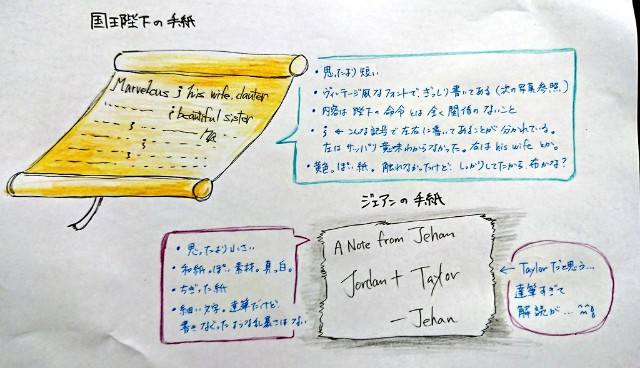 国王陛下の手紙
Marvelous ; his wife. dauter
; beautiful sister
・思ったより短い
・ヴィンテージ風なフォントで、ぎっしり書いてある(次の写真参照。)
・内容は陛下の命令とは全く関係のないこと
・; ← こんな記号で左右に書いてあることが分かれている。
左はサッパリ意味わからなかった。右は his wife とか。
・黄色っぽい紙。触れなかったけど、しっかりしてたから、布かな?
ジェアンの手紙
・思ったより小さい
・和紙っぽい素材。真っ白。
・ちぎった紙
・細い文字。達筆だけど、
書きなぐったような乱暴さはない
A Note from Jehan
Jordan + Taylor
— Jehan
← Taylorだと思う…
達筆すぎて
解読が…